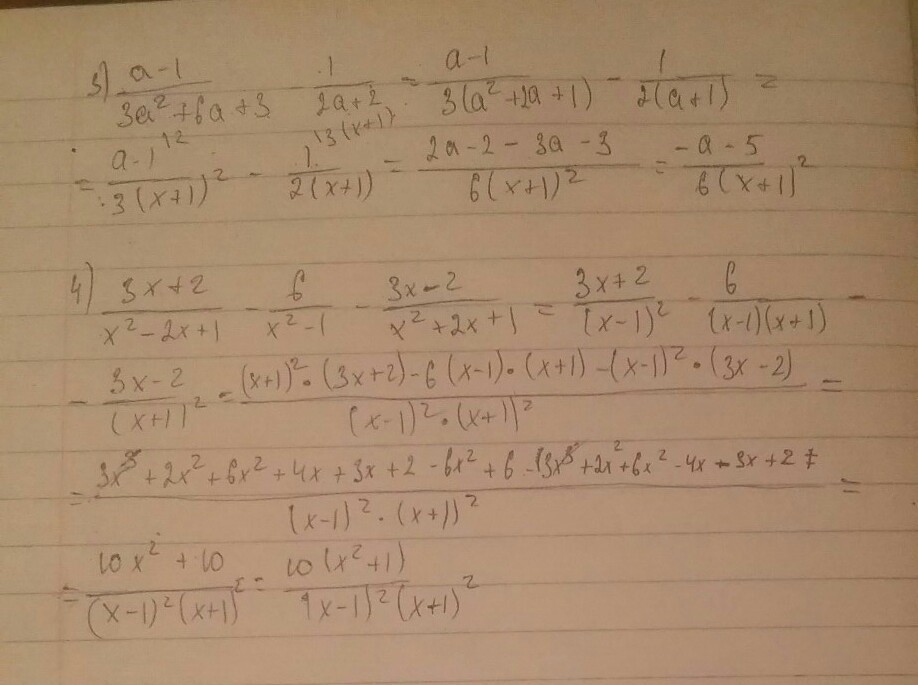 3) (a-1)/(3a²+6a+3) - 1/(2a+2) = (a-1)/(3(a²+2a+1)) - 1/(2(a+1)) =
= (a-1)^{12}/(3(x+1)²) - 1^{13(x+1)}/(2(x+1)) = (2a-2-3a-3)/(6(x+1)²) = (-a-5)/(6(x+1)²)
4) (3x+2)/(x²-2x+1) - 6/(x²-1) - (3x-2)/(x²+2x+1) = (3x+2)/((x-1)²) - 6/((x-1)(x+1)) -
- (3x-2)/((x+1)²) = ((x+1)²·(3x+2)-6(x-1)·(x+1)-(x-1)²·(3x-2))/((x-1)²·(x+1)²) =
= (3x³+2x²+6x²+4x+3x+2-6x²+6-3x³+2x²+6x²-4x-3x+2)/((x-1)²·(x+1)²) =
= (10x²+10)/((x-1)²(x+1)²) = 10(x²+1)/((x-1)²(x+1)²)